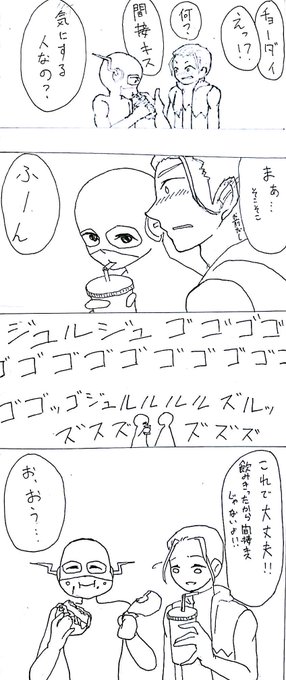 チョーダイ
えっ!?
何?
間接キス
気にする
人なの?
まぁ…
そこそこ
ふーん
ジュルジュゴゴゴゴ
ゴゴゴゴゴゴゴゴゴゴ
ゴゴッゴジュルルルルズルッ
ズスズ ズズズ
これで大丈夫!!
飲みきったから間接キス
じゃないよ!!
お、おう…